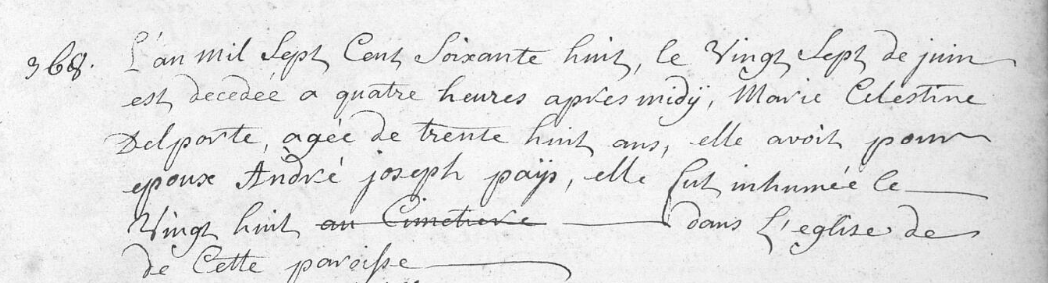 368. L'an mil Sept Cent Soixante huit, le Vingt Sept de juin
est decedée a quatre heures apres midÿ, Marie Celestine
Delporte, agée de trente huit ans, elle avoit pour
epoux André joseph paÿs, elle fut inhumée le
Vingt huit au Cimetiere dans L'eglise de
de Cette paroisse